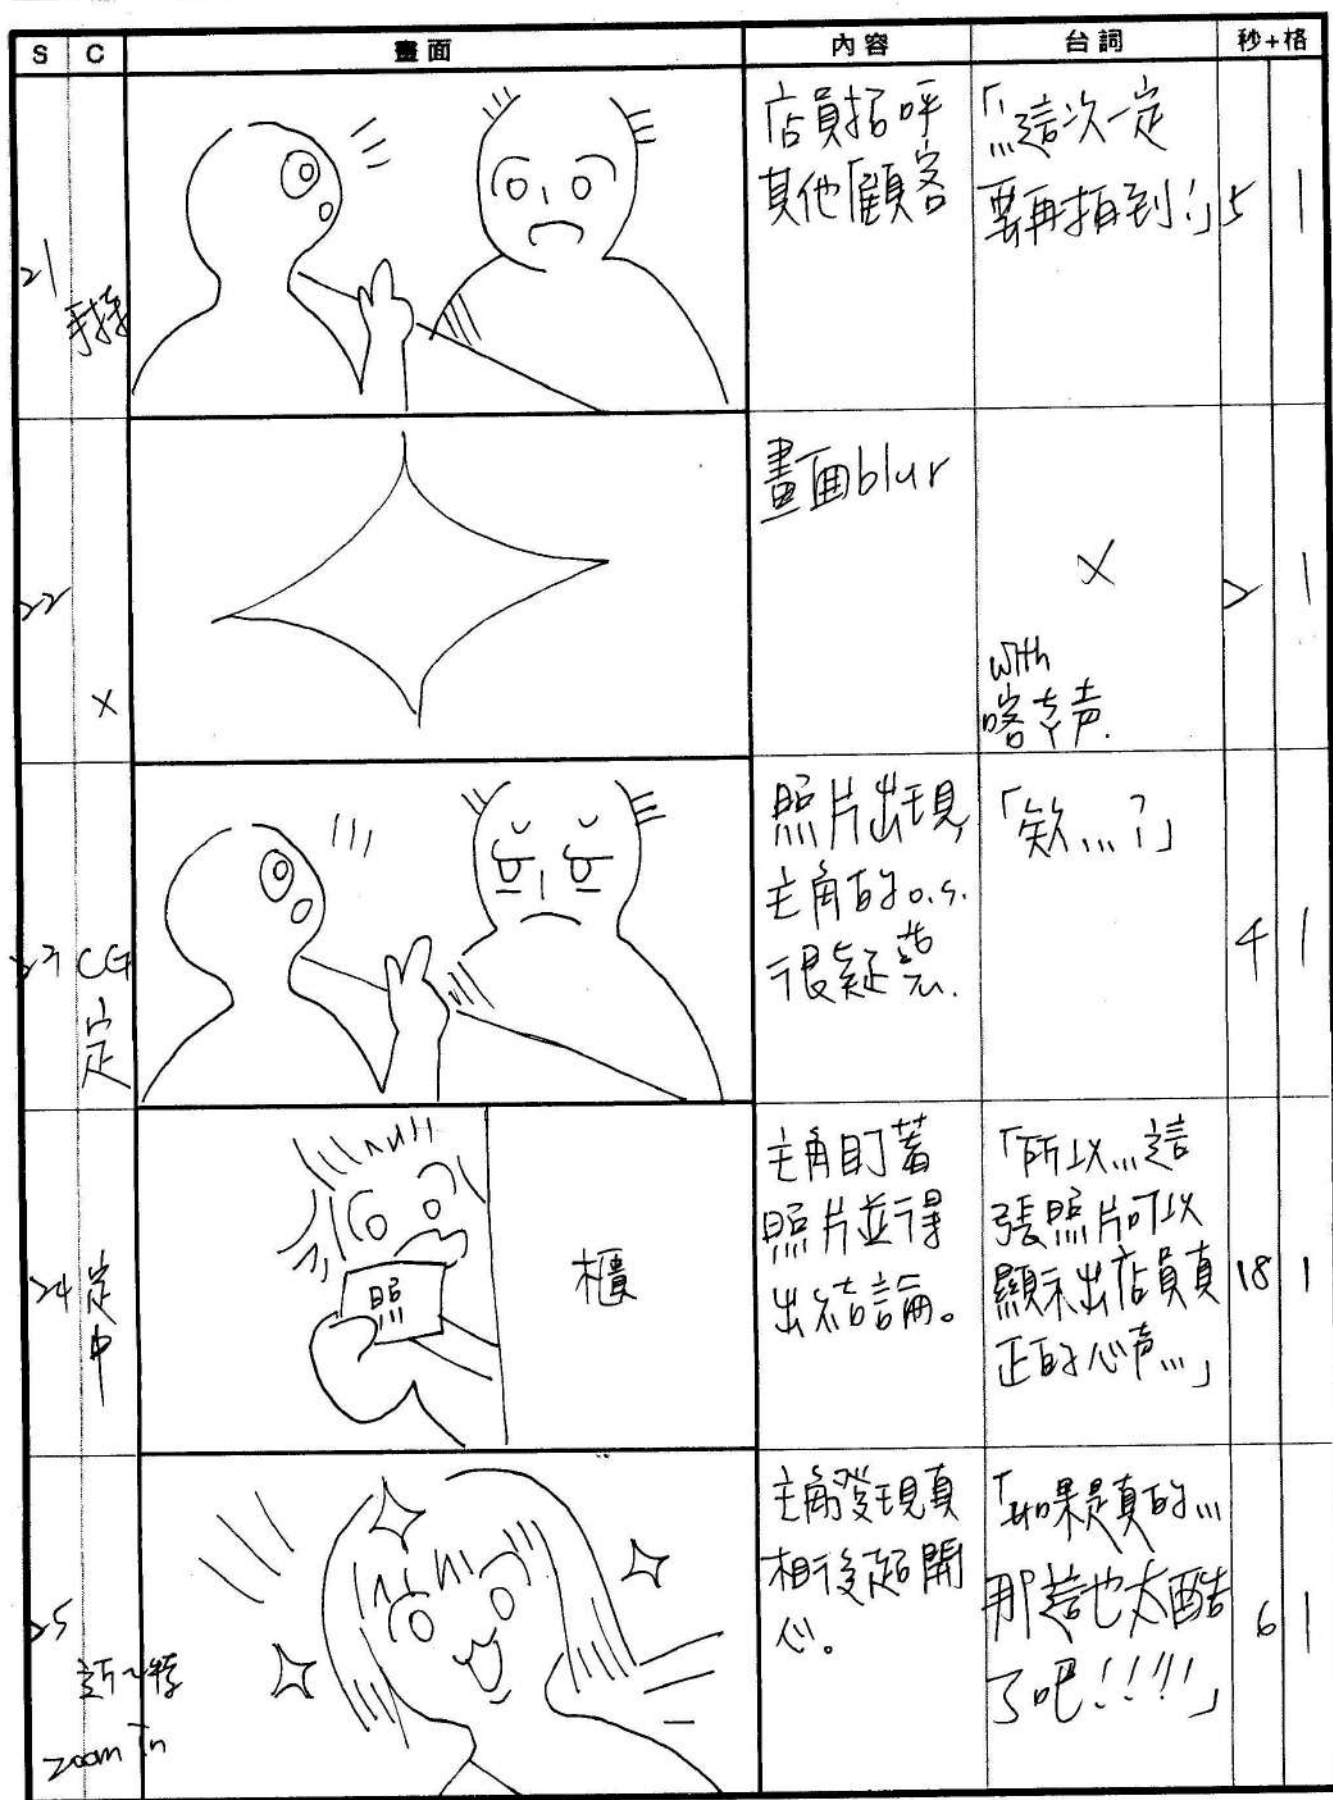 S C 畫面 內容 台詞 秒+格
21
手持
店員招呼
其他顧客
「...這次一定
要再拍到!」
5 1
22
X
畫面blur
X
with
喀ㄘ声.
2 1
23 CG
定
照片出現,
主角的o.s.
很疑惑.
「欸...?」
4 1
24 定
中
照
櫃
主角盯著
照片並得
出結論。
「所以...這
張照片可以
顯示出店員真
正的心声...」
18 1
25
近~特
zoom in
主角發現真
相後超開
心。
「如果是真的...
那這也太酷
了吧!!!!」
6 1